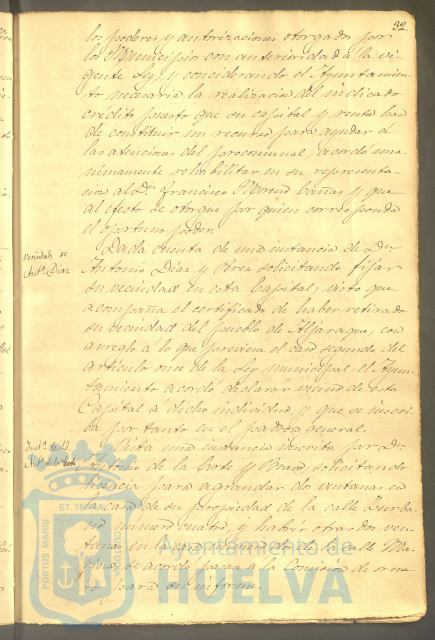 32.
los poderes y autorizaciones otorgados por
los Municipios con anterioridad á la vi-
gente Ley y considerando el Ayuntamien-
to necesaria la realización del indicado
credito puesto que su capital y renta han
de constituir un recurso para ayudar á
las atenciones del procomunal, acordó una-
nimamente rehabilitar en su representa-
cion al Francisco Moreno y que
al efecto se otorgue por quien corresponda
el oportuno poder.
Vecindad de
Antº Diaz
Dada cuenta de una instancia de Dn
Antonio Diaz y Perez solicitando fijar
su vecindad en esta Capital; visto que
acompaña el certificado de haber retirado
su vecindad del pueblo de Aljaraque, con
arreglo á lo que previene el caso segundo del
articulo once de la Ley municipal el Ayun-
tamiento acordó declarar vecino de esta
Capital a dicho individuo y que se inscri-
ba por tanto en el padron general.
Instª de D.
Antº de la Corte
Vista una instancia suscrita por D.
Antonio de la Corte y solicitando
licencia para agrandar dos ventanas en
la casa de su propiedad de la calle Zurba-
no número cuatro, y habrir otras dos ven-
tanas en la
se acordó pasar a la Comision de orna-
to para su informe.
PORTUS MARIS ET TERRAE CUSTODIA
Ayuntamiento de
HUELVA